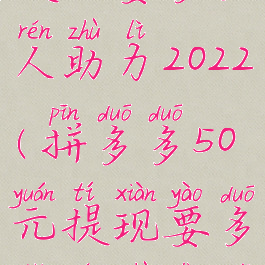 rén zhù lì
人助力2022
pīn duō duō
(拼多多50
yuán tí xiàn yào duō
元提现要多